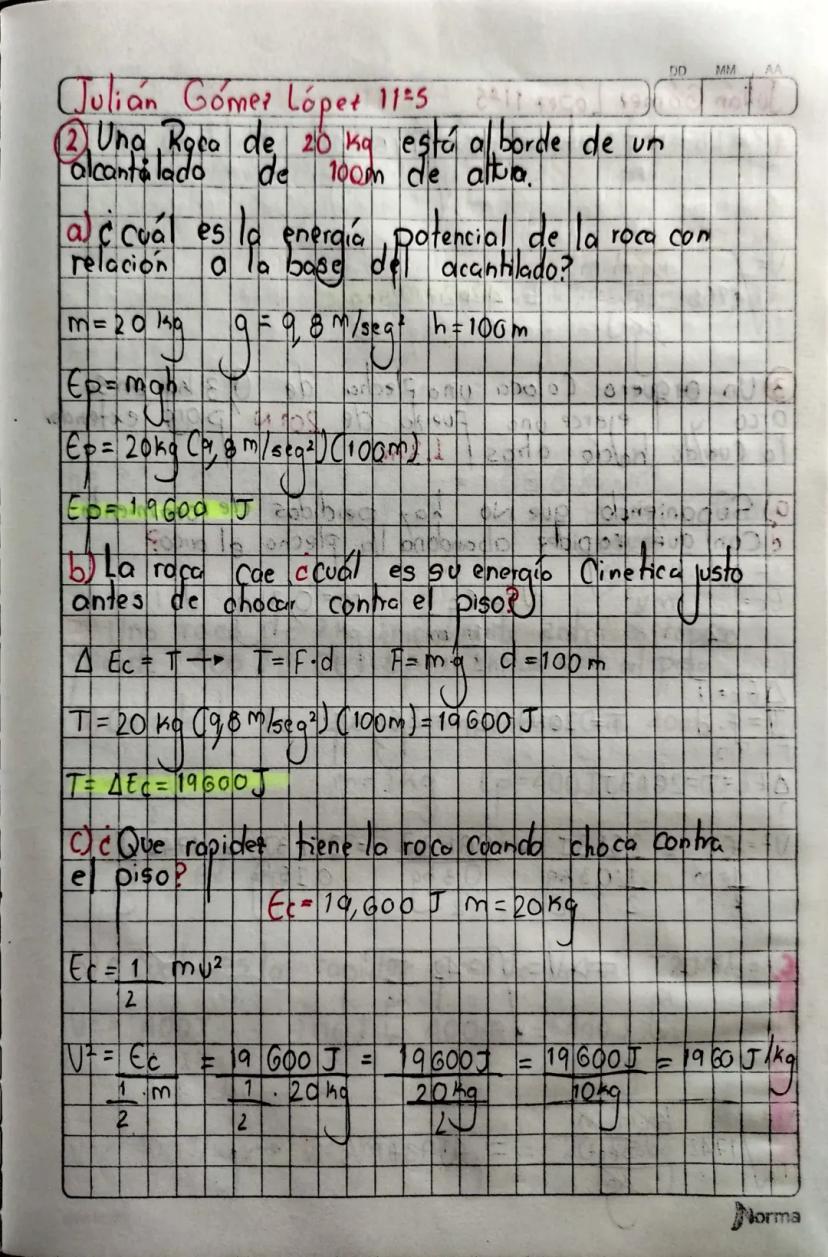 DD MM AA
Julián Gómez López 11°5
② Una Roca de 20 kg está al borde de un
alcantilado de 100m de altura.
a) ¿cuál es la energía potencial de la roca con
relación a la base del acantilado?
m=20 kg g=9,8 m/seg² h=100m
Ep=mgh
Ep= 20kg (9,8 m/seg²)(100m)
Ep=19600 J
b) La roca cae ¿cuál es su energía Cinetica justo
antes de chocar contra el piso?
Δ Ec = T → T=F·d F=m·g d=100m
T=20 kg (9,8 m/seg²)(100m)=19600 J
T= ΔEc=19600J
c) ¿Que rapidez tiene la roca cuando choca contra
el piso?
Ec= 19,600 J m=20kg
Ec= 1/2 mv²
V² = Ec / (1/2 · m) = 19 600 J / (1/2 · 20 kg) = 19600J / (20kg/2) = 19600J / 10kg = 1960 J/kg
Norma